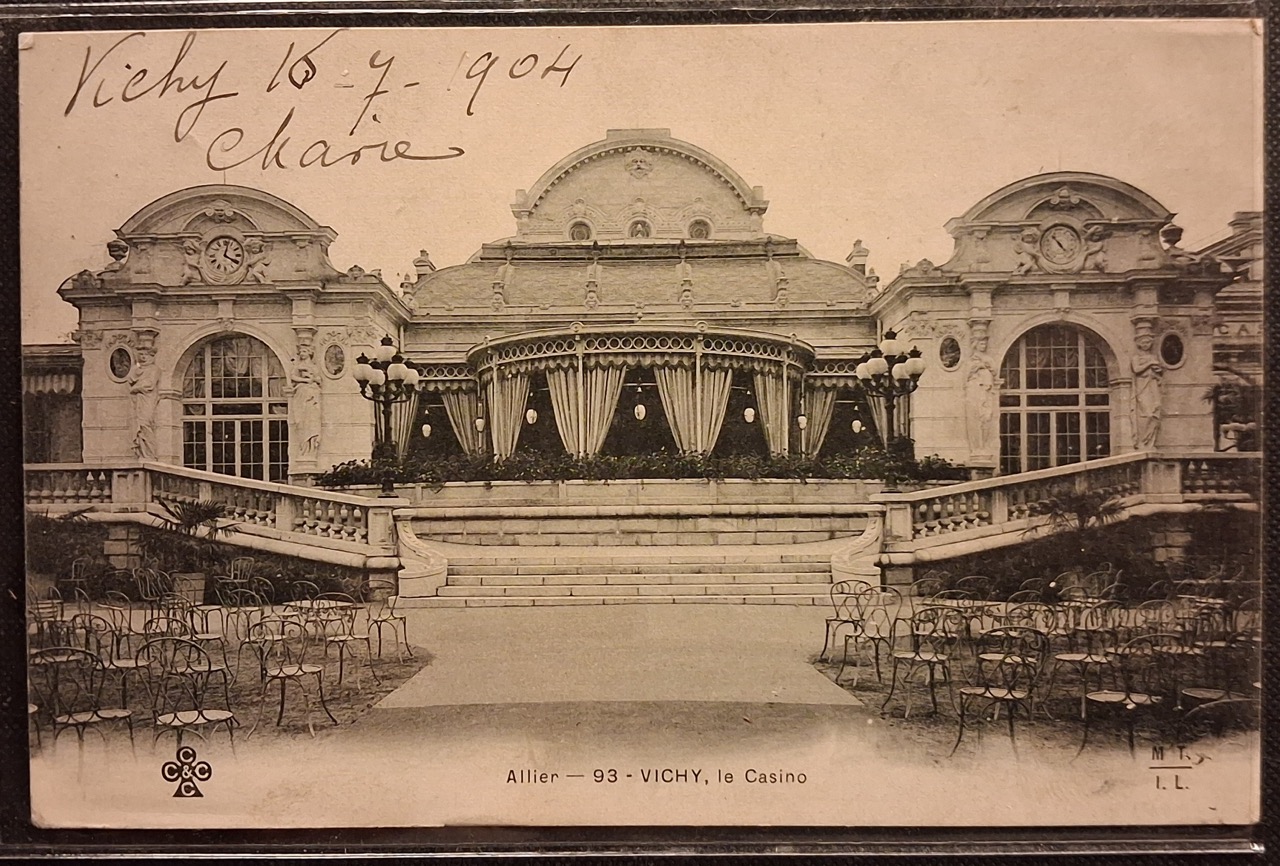 Vichy 16-7-1904
Marie
CA
C
C&C
C
Allier — 93 - VICHY, le Casino
M T.
I. L.